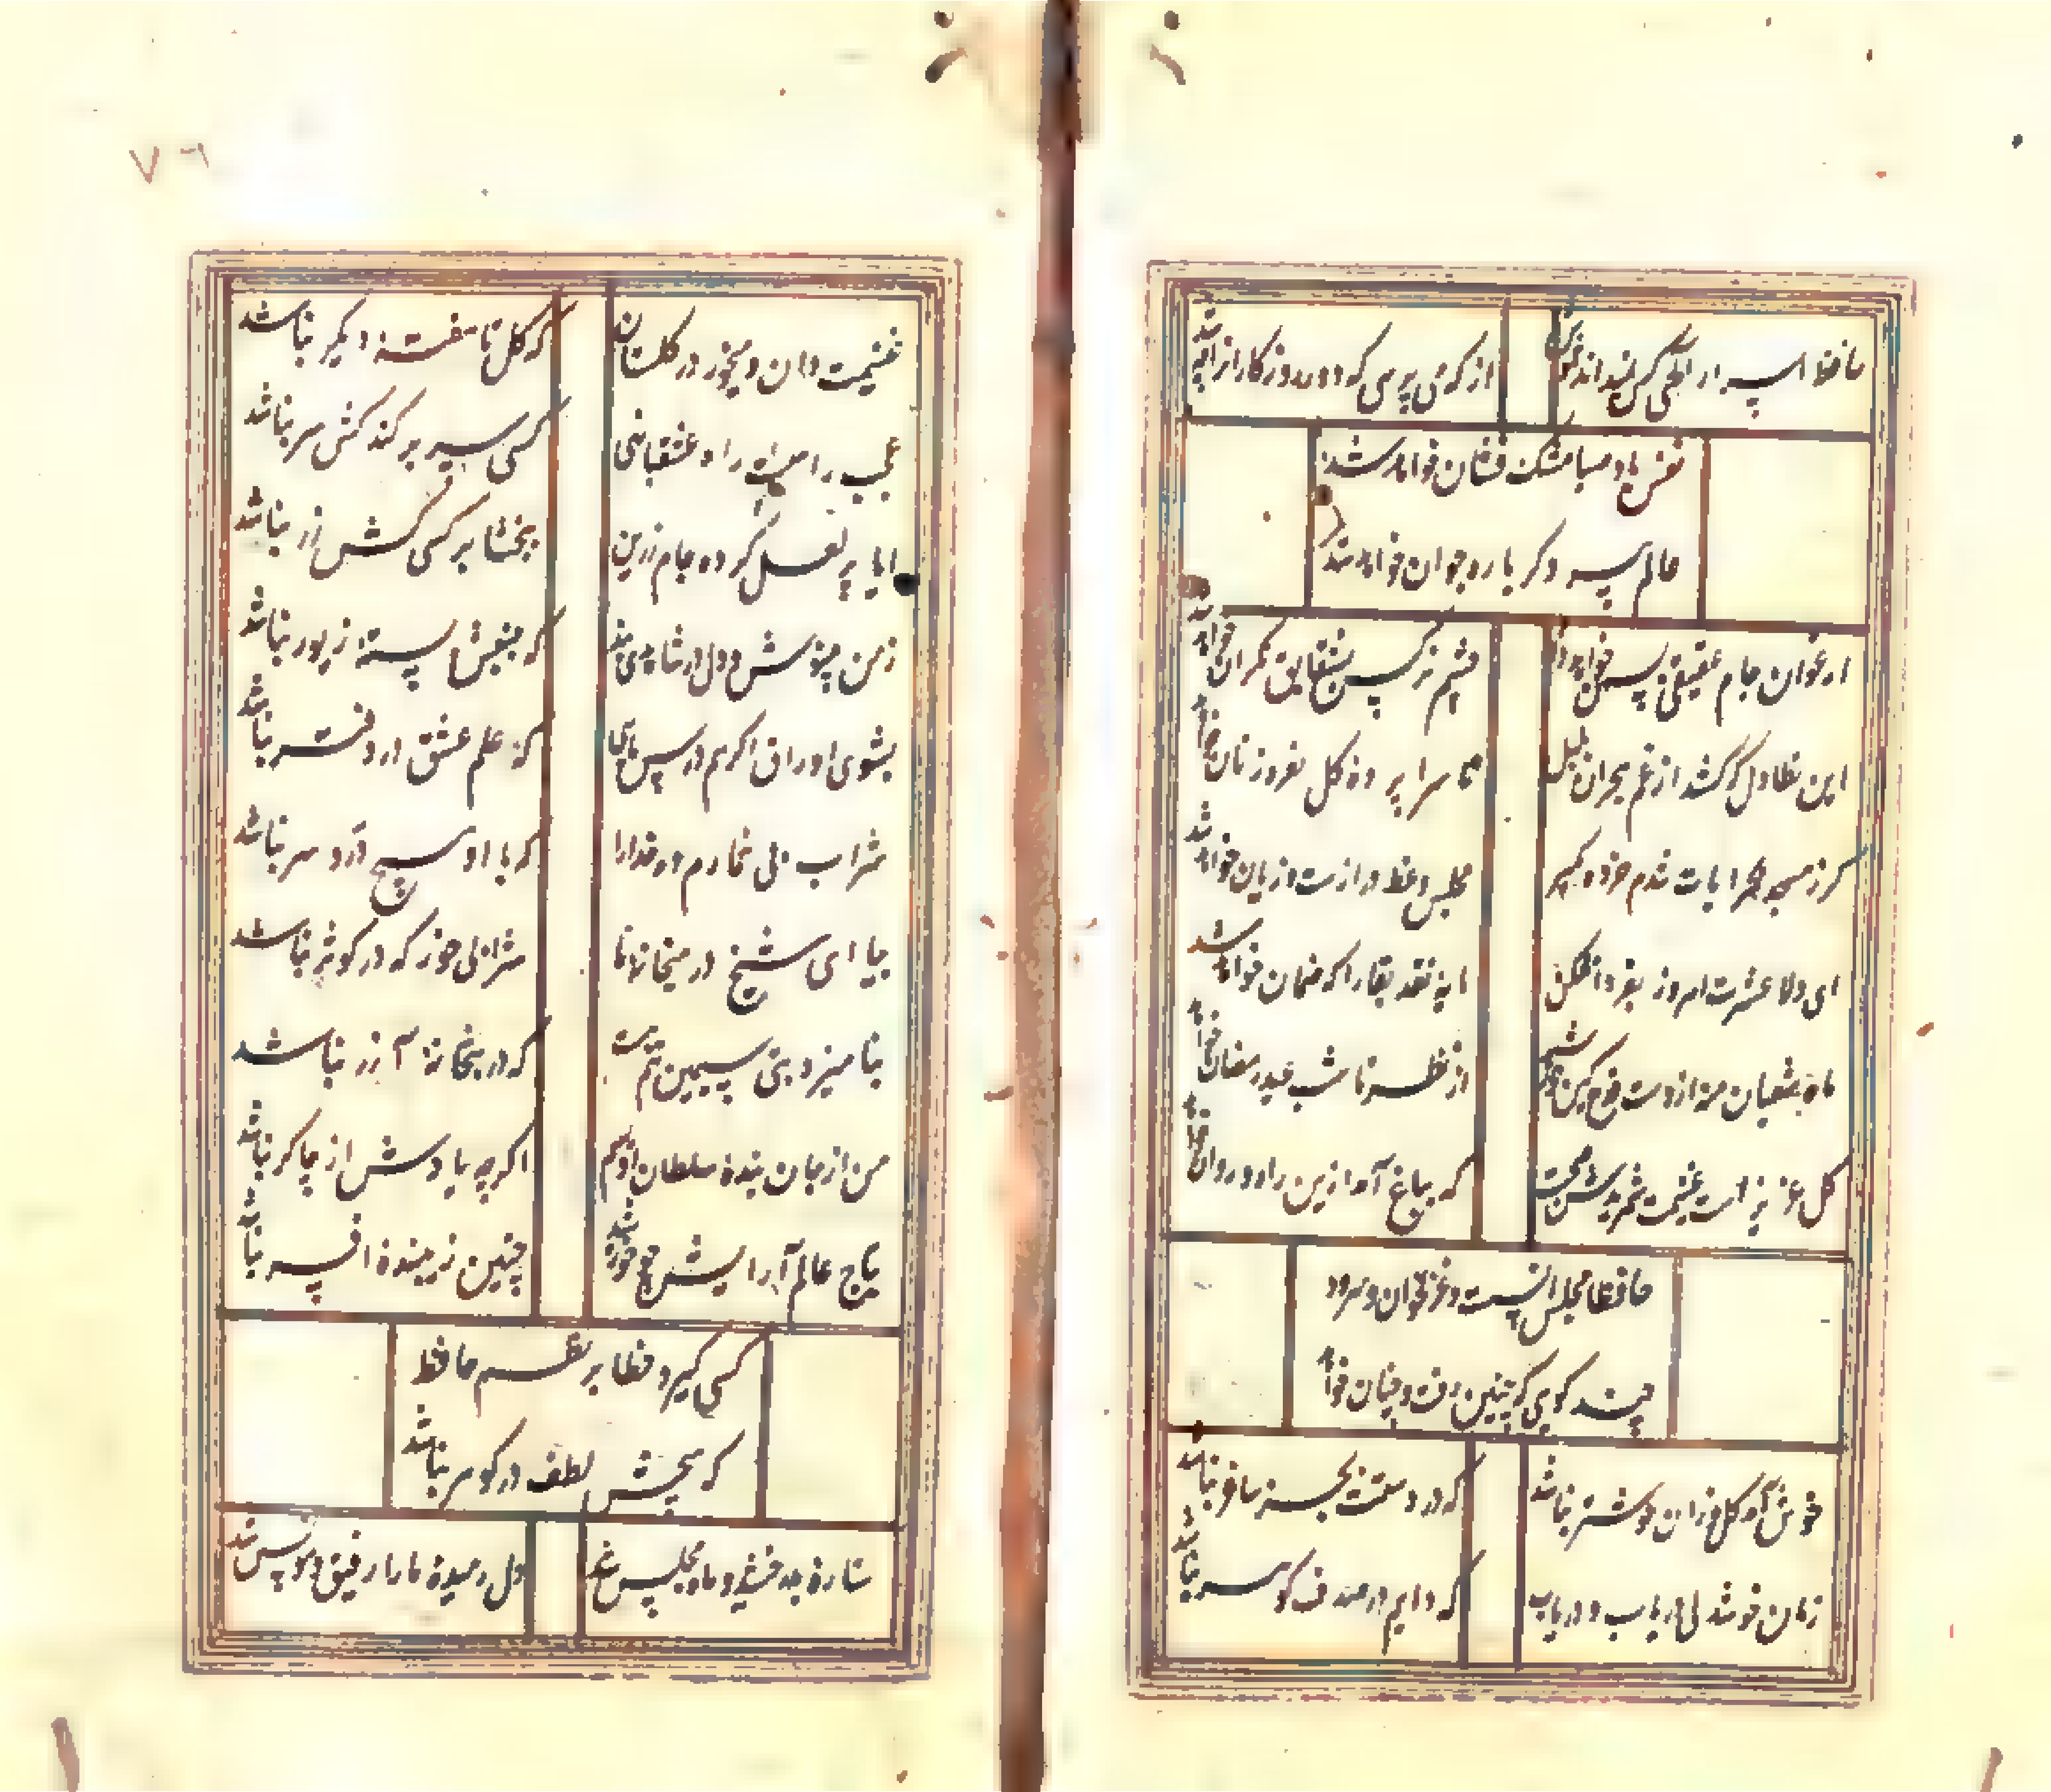 حافظ اسرار الهی کس نمیداند خموش
از که می پرسی که دور روزگاران را چه شد
نفس باد صبا مشک فشان خواهد شد
عالم پیر دگر باره جوان خواهد شد
ارغوان جام عقیقی بسمن خواهد داد
چشم نرکس بشقایق نکران خواهد شد
این تطاول که کشد از غم هجران بلبل
تا سراپرده کل نعره زنان خواهد شد
گر ز مسجد بخرابات شدم خرده مکیر
مجلس وعظ درازست و زمان خواهد شد
ای دل ار عشرت امروز بفردا فکنی
مایه نقد بقا را که ضمان خواهد شد
ماه شعبان مده از دست قدح کین خورشید
از نظر تا شب عید رمضان خواهد شد
کل عزیز است غنیمت شمریدش صحبت
که بباغ آمد ازین راه و روان خواهد شد
حافظا مجلس انسست و غزلخوان و سرود
چند کویی که چنین رفت و چنان خواهد شد
خوش آمد کل وزان خوشتر نباشد
که در دستت بجز ساغر نباشد
زمان خوشدلی دریاب و دریاب
که دایم در صدف کوهر نباشد
۷۶
غنیمت دان و میخور در کلستان
که کل تا هفته دیکر نباشد
عجب راهیست راه عشقبازی
کسی سر بر کند کش سر نباشد
ایا پر لعل کرده جام زرین
ببخشا بر کسی کش زر نباشد
ز من بنیوش و دل در شاهدی بند
که حسنش بسته زیور نباشد
بشوی اوراق اکر هم درس مایی
که علم عشق در دفتر نباشد
شراب بی خمارم ده خدارا
که با او هیچ درد سر نباشد
بیا ای شیخ در میخانه ما
شرابی خور که در کوثر نباشد
بنامیزد بتی سیمین تنم هست
که در بتخانه آزر نباشد
من از جان بنده سلطان اویسم
اکرچه یادش از چاکر نباشد
بتاج عالم آرایش که خورشید
چنین زیبنده افسر نباشد
کسی کیرد خطا بر نظم حافظ
که هیچش لطف در کوهر نباشد
ستاره بدرخشید و ماه مجلس شد
دل رمیده ما را رفیق و مونس شد